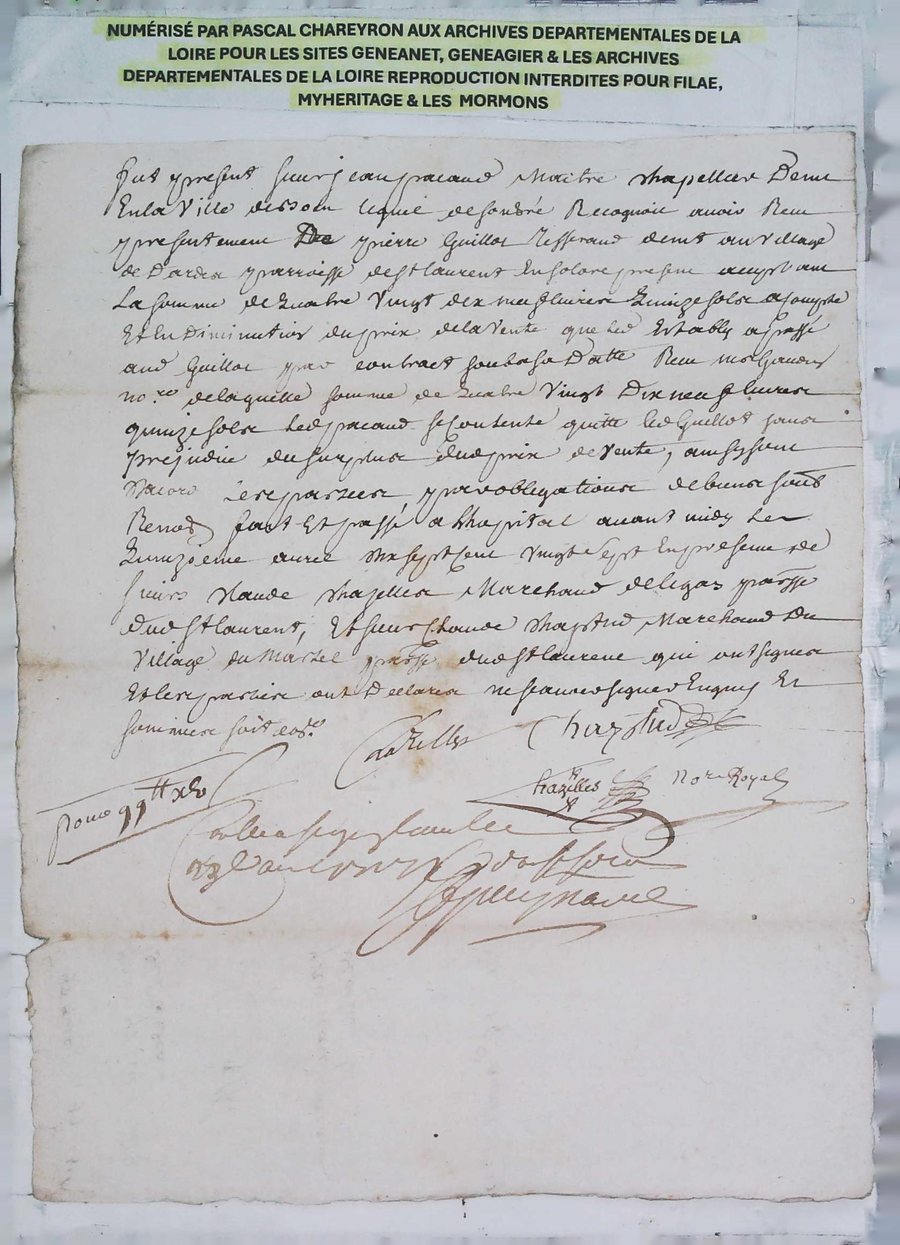 NUMÉRISÉ PAR PASCAL CHAREYRON AUX ARCHIVES DEPARTEMENTALES DE LA
LOIRE POUR LES SITES GENEANET, GENEAGIER & LES ARCHIVES
DEPARTEMENTALES DE LA LOIRE REPRODUCTION INTERDITES POUR FILAE,
MYHERITAGE & LES MORMONS
fut present sieur jean pacaud Maitre chapellier Demt
En la Ville lequel de son gré Recognoit avoir Receu
presentement De pierre Guillot Tisserand demt au village
de parroisse de St laurent En solore present acceptant
La somme de Quatre Vingt dix neuf livres Quinze sols a Compte
Et En Diminution du prix de la Vente que led Estably a passé
aud Guillot par contract sous sa Datte Receu
no.re de laquelle somme de Quatre Vingt Dix neuf livres
quinze sols led pacaud se contente quitte led Guillot sans
prejudice du surplus dud prix de Vente, ainsy sont
les parties par obligations de biens
fait Et passé a lhapital avant midy le
Quinzieme avril mil sept cent vingt sept En presence de
sieurs Claude Chazelles Marchand de parsse
dud St laurent, Et sieur Claude Chaptud Marchand Du
Village du Martel parsse dud St laurent qui ont signés
Et les parties ont Declarés ne scavoir signer Enquis Et
sommés
Chazelles Chaptud
pour 99tt
Chazelles Nore Royal